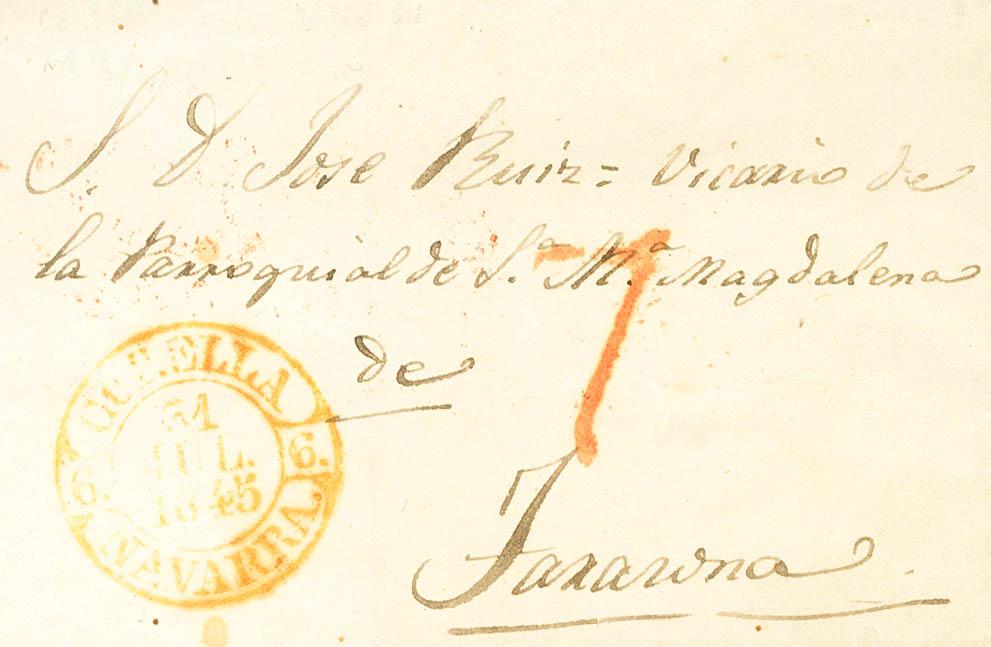 S. D. Jose Ruiz = Vicario de
la Parroquial de S.ª M.ª Magdalena
de
Tarazona
CORELLA
31
JUL.
1845
6. 6.
NAVARRA.